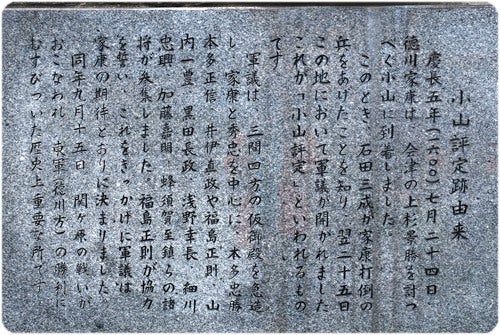 小山評定跡由来
慶長五年(一六〇〇)七月二十四日
徳川家康は、会津の上杉景勝を討つ
べく小山に到着しました
このとき、石田三成が家康打倒の
兵をあげたことを知り、翌二十五日
この地において軍議が開かれました
これが「小山評定」といわれるもの
です
軍議は、三間四方の仮御殿を急造
し、家康と秀忠を中心に、本多忠勝
本多正信、井伊直政や福島正則、山
内一豊、黒田長政、浅野幸長、細川
忠興、加藤嘉明、蜂須賀至鎮らの諸
将が参集しました。福島正則が協力
を誓い、これをきっかけに軍議は
家康の期待どおりに決まりました
同年九月十五日、関ヶ原の戦いが
おこなわれ、東軍(徳川方)の勝利に
むすびついた歴史上重要な所です